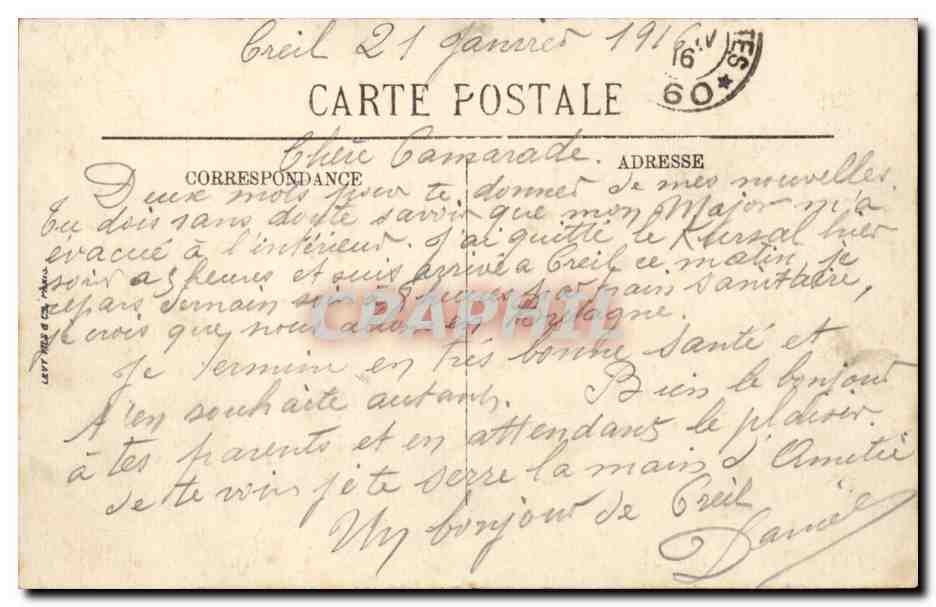 Creil 21 Janvier 1916
16
TES * 60
CARTE POSTALE
Chère Camarade.
CORRESPONDANCE
ADRESSE
Deux mots pour te donner de mes nouvelles.
Tu dois sans doute savoir que mon Major m'a
évacué à l'intérieur. J'ai quitté le Kursal hier
soir a 5 heures et suis arrivé a Creil ce matin, je
repars demain soir à heures par train sanitaire,
je crois que nous allons en Bretagne.
Je termine en trés bonne santé et
t'en souhaite autant. Bien le bonjour
à tes parents et en attendant le plaisir
de te voir je te serre la main d'Amitié
Un bonjour de Creil
Daniel
LEVY FILS & Cie, PARIS
CRAPHIL